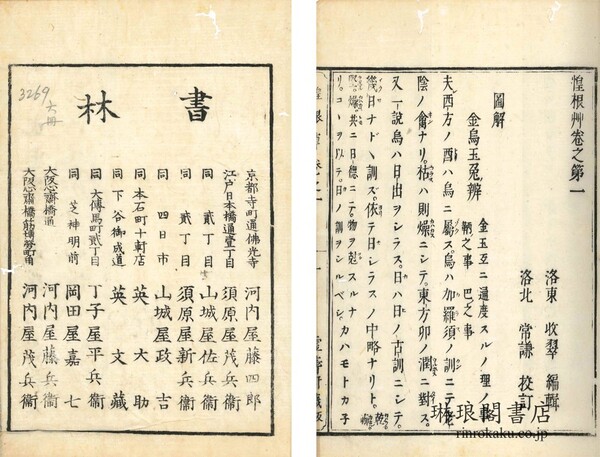 惶根艸卷之第一
洛東 收翠 編輯
洛北 常謙 校訂
圖解
金烏玉兎辨
金玉互ニ過度スルノ理ノ事
鞆之事 巴之事
夫西方ノ酉ハ烏ニ屬ス。烏ハ加羅須ノ訓ニテ
陰ノ禽ナリ。枯ハ則燥ニシテ。東方卯ノ潤ニ對ス。
又一說烏ハ日出ヲシラス。日ハ日ノ古訓ニシテ。
幾日ナドヽ訓ズ。依テ日シラスノ中略ナリト。
共ニ日德ニテ。物ヲ
リ。コーヲ以テ。日ノ訓ヲシルベシ。カハモトカ子
琳琅閣書店
rinrokaku.co.jp
書林
3269
六冊
京都寺町通佛光寺 河内屋藤四郎
江戸日本橋通壹丁目 須原屋茂兵衞
同 貳丁目 山城屋佐兵衞
同 貳丁目 須原屋新兵衞
同 四日市 山城屋政吉
同 本石町十軒店 英大助
同 下谷御成道 英文藏
同 大傳馬町貳丁目 丁子屋平兵衞
同 芝神明前 岡田屋嘉七
大阪心齋橋通 河内屋藤兵衞
大阪心齋橋筋博勞町角 河内屋茂兵衞